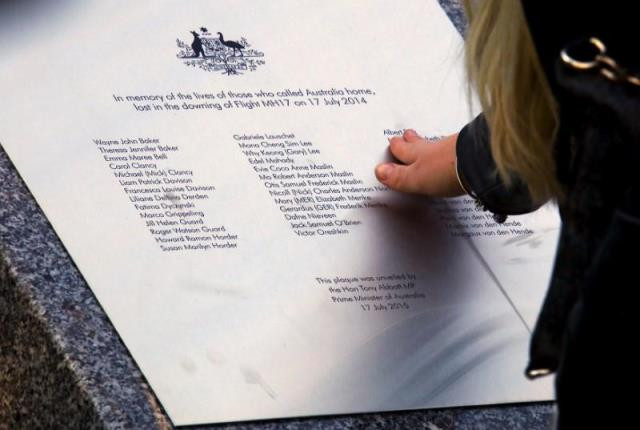 In memory of the lives of those who called Australia home,
lost in the downing of Flight MH17 on 17 July 2014
Wayne John Baker
Theresa Jennifer Baker
Emma Maree Bell
Carol Clancy
Michael (Mick) Clancy
Liam Patrick Davison
Francesca Louise Davison
Liliane Derden
Fatima Dyczynski
Marco Grippeling
Jill Helen Guard
Roger Watson Guard
Howard Ramon Horder
Susan Marilyn Horder
Gabriele Lauschet
Mona Cheng Sim Lee
Why Keong (Gary) Lee
Edel Mahady
Evie Coco Anne Maslin
Mo Robert Anderson Maslin
Otis Samuel Frederick Maslin
Nicoll (Nick) Charles Anderson
Mary (MER) Elizabeth Menke
Gerardus (GER) Frederik Menke
Dafne Nieveen
Jack Samuel O'Brien
Victor Oreshkin
Albert
van den
van den Hende
Margaux van den Hende
This plaque was unveiled by
the Hon Tony Abbott MP
Prime Minister of Australia
17 July 2015